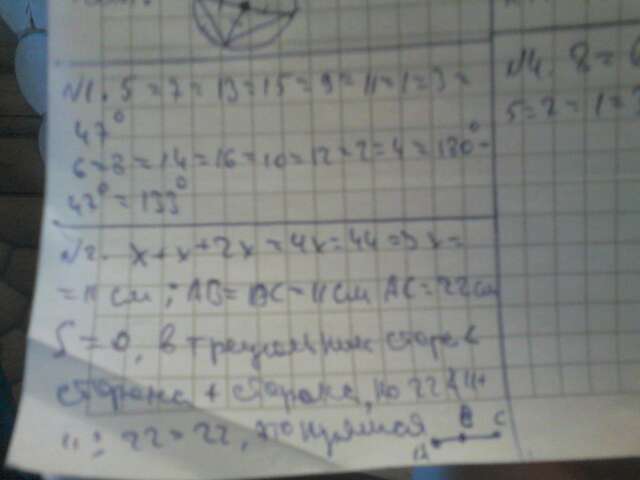 №1. 5 = 7 = 13 = 15 = 9 = 11 = 1 = 3 =
47°
6 = 8 = 14 = 16 = 10 = 12 = 2 = 4 = 180° -
47° = 133°
№2. x + x + 2x = 4x = 44 => x =
= 11 см; AB = BC = 11 см AC = 22 см
S = 0, в треугольник сторона <
сторона + сторона, но 22 < 11 +
11; 22 = 22, это прямая
A B C
№4. 8 = 6
5 = 7 = 1 = 3